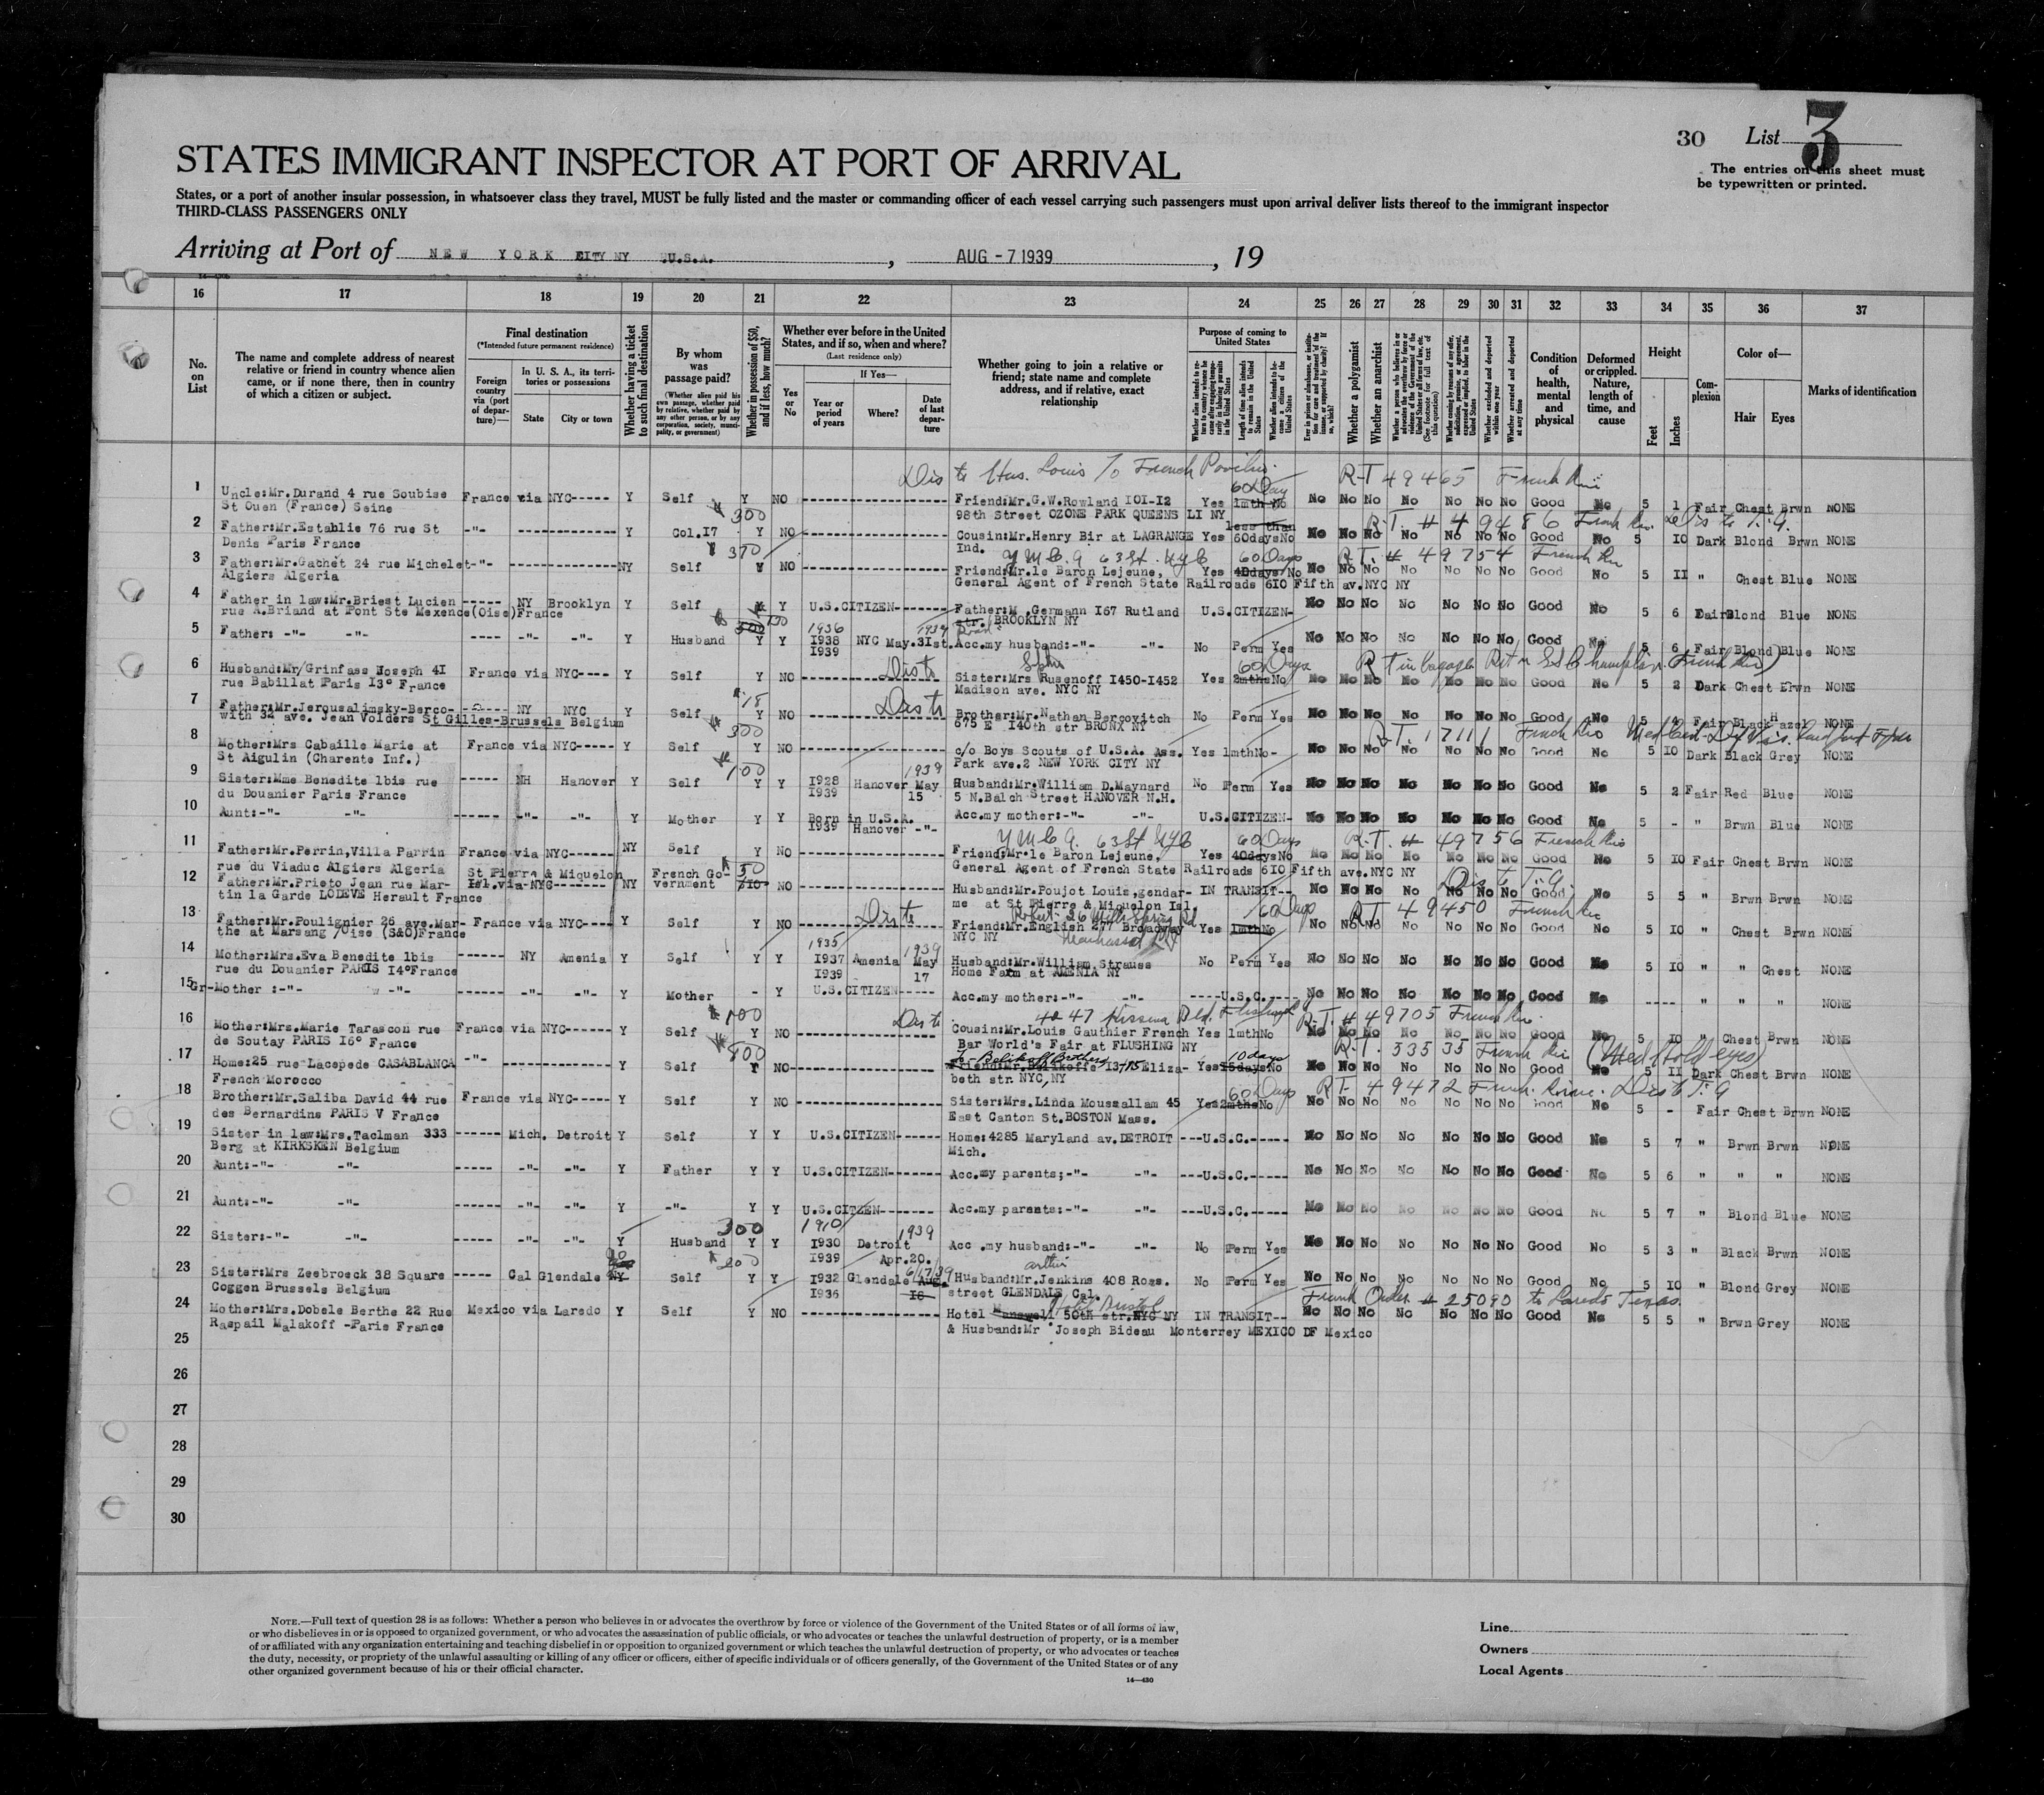 30 List 3
STATES IMMIGRANT INSPECTOR AT PORT OF ARRIVAL
The entries on this sheet must
be typewritten or printed.
States, or a port of another insular possession, in whatsoever class they travel, MUST be fully listed and the master or commanding officer of each vessel carrying such passengers must upon arrival deliver lists thereof to the immigrant inspector
THIRD-CLASS PASSENGERS ONLY
Arriving at Port of NEW YORK CITY NY U.S.A. , AUG - 7 1939 , 19
16 17 18 19 20 21 22 23 24 25 26 27 28 29 30 31 32 33 34 35 36 37
No. on List
The name and complete address of nearest relative or friend in country whence alien came, or if none there, then in country of which a citizen or subject.
Final destination
(*Intended future permanent residence)
Foreign country via (port of departure)—
In U. S. A., its territories or possessions
State City or town
Whether having a ticket to such final destination
By whom was passage paid?
(Whether alien paid his own passage, whether paid by relative, whether paid by any other person, or by any corporation, society, municipality, or government)
Whether in possession of $50, and if less, how much?
Whether ever before in the United States, and if so, when and where?
(Last residence only)
Yes or No
If Yes—
Year or period of years
Where?
Date of last departure
Whether going to join a relative or friend; state name and complete address, and if relative, exact relationship
Purpose of coming to United States
Length of time alien intends to remain in the United States
Whether alien intends to become a citizen of the United States
Whether a polygamist
Whether an anarchist
Condition of health, mental and physical
Deformed or crippled. Nature, length of time, and cause
Height
Feet Inches
Complexion
Color of—
Hair Eyes
Marks of identification
R-T 49465
1 Uncle:Mr.Durand 4 rue Soubise France via NYC----- Y Self Y NO Friend:Mr.G.W.Rowland IOI-I2 Yes 1mth No 60 Day No No No No No No No Good No 5 1 Fair Chest Brwn NONE
St Ouen (France) Seine 98th Street OZONE PARK QUEENS LI NY
300 less than R.T. # 49486
2 Father:Mr.Establie 76 rue St -"- Y Col.I7 Y NO Cousin:Mr.Henry Bir at LAGRANGE Yes 60days No No No No No No No No Good No 5 IO Dark Blond Brwn NONE
Denis Paris France Ind.
370 Y M C A 63 St. NYC 60 Days R.T. # 49754
3 Father:Mr.Gachet 24 rue Michelet -"- NY Self Y NO Friend:Mr.le Baron Lejeune, Yes 40days No No No No No No No No Good No 5 II " Chest Blue NONE
Algiers Algeria General Agent of French State Railroads 6IO Fifth av.NYC NY
4 Father in law:Mr.Briest Lucien ----- NY Brooklyn Y Self Y Y U.S.CITIZEN Father:M.Germann I67 Rutland U.S.CITIZEN- No No No No No No No Good No 5 6 Fair Blond Blue NONE
rue A.Briand at Pont Ste Mexence(Oise)France str. BROOKLYN NY
1936
5 Father: -"- -"- ---- -"- -"- Y Husband Y Y I938 NYC May.3Ist. Acc.my husband:-"- -"- No Perm Yes No No No No No No No Good No 5 6 Fair Blond Blue NONE
I939
60 Days
6 Husband:Mr/Grinfass Joseph 4I France via NYC---- Y Self Y NO Sister:Mrs Rusenoff I450-I452 Yes 2mths No No No No No No No No Good No 5 2 Dark Chest Brwn NONE
rue Babillat Paris I3° France Madison ave. NYC NY
18
7 Father:Mr.Jerousalimsky-Berco- NY NYC Y Self Y NO Brother:Mr.Nathan Bercovitch No Perm Yes No No No No No No No Good No 5 4 Fair Black Hazel NONE
with 32 ave. Jean Volders St Gilles-Brussels Belgium 675 E I40th str BRONX NY
300 R.T. 17111
8 Mother:Mrs Cabaille Marie at France via NYC----- Y Self Y NO c/o Boys Scouts of U.S.A. Ass. Yes 1mth No- No No No No No No No Good No 5 IO Dark Black Grey NONE
St Aigulin (Charente Inf.) Park ave.2 NEW YORK CITY NY
100 1939
9 Sister:Mme Benedite 1bis rue ----- NH Hanover Y Self Y Y I928 Hanover May Husband:Mr.William D.Maynard No Perm Yes No No No No No No No Good No 5 2 Fair Red Blue NONE
du Douanier Paris France I939 15 5 N.Balch Street HANOVER N.H.
10 Aunt:-"- -"- ------ -"- -"- Y Mother Y Y Born in U.S.A. Acc.my mother:-"- -"- U.S.CITIZEN- No No No No No No No Good No 5 - " Brwn Blue NONE
I939 Hanover -"-
Y M C A. 63 St NYC 60 Days R.T. # 49756
11 Father:Mr.Perrin,Villa Parrin France via NYC------ NY Self Y NO Friend:Mr.le Baron Lejeune, Yes 40days No No No No No No No No Good No 5 IO Fair Chest Brwn NONE
rue du Viaduc Algiers Algeria General Agent of French State Railroads 6IO Fifth ave.NYC NY
St Pierre & Miquelon French Go- 50
12 Father:Mr.Prieto Jean rue Mar- Isl.via-NYC NY vernment NO Husband:Mr.Poujot Louis,gendar- IN TRANSIT-- No No No No No No No Good No 5 5 " Brwn Brwn NONE
tin la Garde LODEVE Herault France me at St Pierre & Miquelon Isl.
60 Days R.T. 49450
13 Father:Mr.Poulignier 26 ave.Mar- France via NYC---- Y Self Y NO Friend:Mr.English 277 Broadway Yes 1mth No No No No No No No No Good No 5 IO " Chest Brwn NONE
the at Marsang /Oise (S&O)France NYC NY
1935 1939
14 Mother:Mrs.Eva Benedite 1bis ------ NY Amenia Y Self Y Y I937 Amenia May Husband:Mr.William Strauss No Perm Yes No No No No No No No Good No 5 IO " " Chest NONE
rue du Douanier PARIS I4°France I939 17 Home Farm at AMENIA NY
15 Gr-Mother :-"- -"- ------ -"- -"- Y Mother - Y U.S.CITIZEN----- Acc.my mother:-"- -"- ----U.S.C.---- No No No No No No No Good No ---- " " " NONE
100 R.T. # 49705
16 Mother:Mrs.Marie Tarascon rue France via NYC------ Y Self Y NO Cousin:Mr.Louis Gauthier French Yes 1mth No No No No No No No No Good No 5 IO Chest Brwn NONE
de Soutay PARIS I6° France Bar World's Fair at FLUSHING NY
800 10 days R.T. 33535 (Med Hold eyes)
17 Home:25 rue Lacepede CASABLANCA -"- Y Self Y NO I3/15 Eliza- Yes 15days No No No No No No No No Good No 5 II Dark Chest Brwn NONE
French Morocco beth str. NYC,NY
60 Days R.T. 49472
18 Brother:Mr.Saliba David 44 rue France via NYC----- Y Self Y NO Sister:Mrs.Linda Moussallam 45 Yes 2mths No No No No No No No No Good No 5 - Fair Chest Brwn NONE
des Bernardins PARIS V France East Canton St.BOSTON Mass.
19 Sister in law:Mrs.Taclman 333 ------ Mich. Detroit Y Self Y Y U.S.CITIZEN------ Home:4285 Maryland av.DETROIT ---U.S.C.----- No No No No No No No Good No 5 7 " Brwn Brwn NONE
Berg at KIRKSKEN Belgium Mich.
20 Aunt:-"- -"- ----- -"- -"- Y Father Y Y U.S.CITIZEN------- Acc.my parents;-"- -"- ---U.S.C.----- No No No No No No No Good No 5 6 " " " NONE
21 Aunt:-"- -"- ----- -"- -"- Y -"- Y Y U.S.CITZEN------- Acc.my parents:-"- -"- ---U.S.C.----- No No No No No No No Good No 5 7 " Blond Blue NONE
300 1910 1939
22 Sister:-"- -"- ----- -"- -"- Y Husband Y Y I930 Detroit Acc .my husband:-"- -"- No Perm Yes No No No No No No No Good No 5 3 " Black Brwn NONE
I939 Apr.20.
200 6/17/39 arthur
23 Sister:Mrs Zeebroeck 38 Square ----- Cal Glendale NY Self Y Y I932 Glendale Aug. Husband:Mr.Jenkins 408 Ross. No Perm Yes No No No No No No No Good No 5 IO " Blond Grey NONE
Coggen Brussels Belgium I936 I6 street GLENDALE Cal.
Hotel Bristol # 25090 to Laredo Texas.
24 Mother:Mrs.Dobele Berthe 22 Rue Mexico via Laredo Y Self Y NO Hotel 50th str.NYC NY IN TRANSIT-- No No No No No No No Good No 5 5 " Brwn Grey NONE
Raspail Malakoff -Paris France & Husband:Mr Joseph Bideau Monterrey MEXICO DF Mexico
25
26
27
28
29
30
NOTE.—Full text of question 28 is as follows: Whether a person who believes in or advocates the overthrow by force or violence of the Government of the United States or of all forms of law,
or who disbelieves in or is opposed to organized government, or who advocates the assassination of public officials, or who advocates or teaches the unlawful destruction of property, or is a member
of or affiliated with any organization entertaining and teaching disbelief in or opposition to organized government or which teaches the unlawful destruction of property, or who advocates or teaches
the duty, necessity, or propriety of the unlawful assaulting or killing of any officer or officers, either of specific individuals or of officers generally, of the Government of the United States or of any
other organized government because of his or their official character.
14—430
Line
Owners
Local Agents